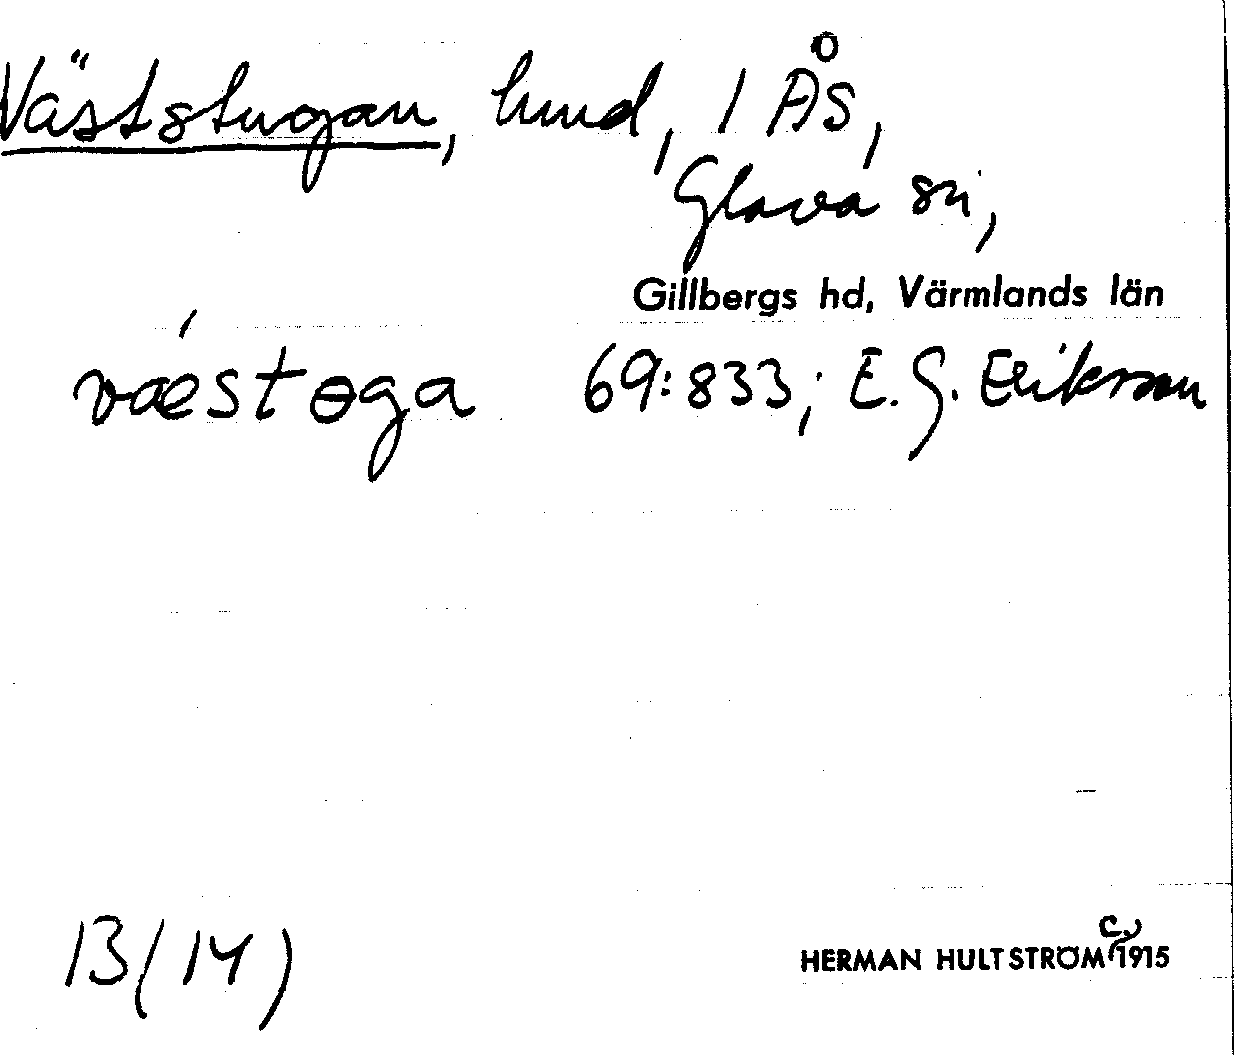 Väststugan, hmd, 1 ÅS,
Glava sn,
Gillbergs hd, Värmlands län
væ´støga 69:833; E. G. Eriksson
13(14)
HERMAN HULTSTRÖM c. 1915